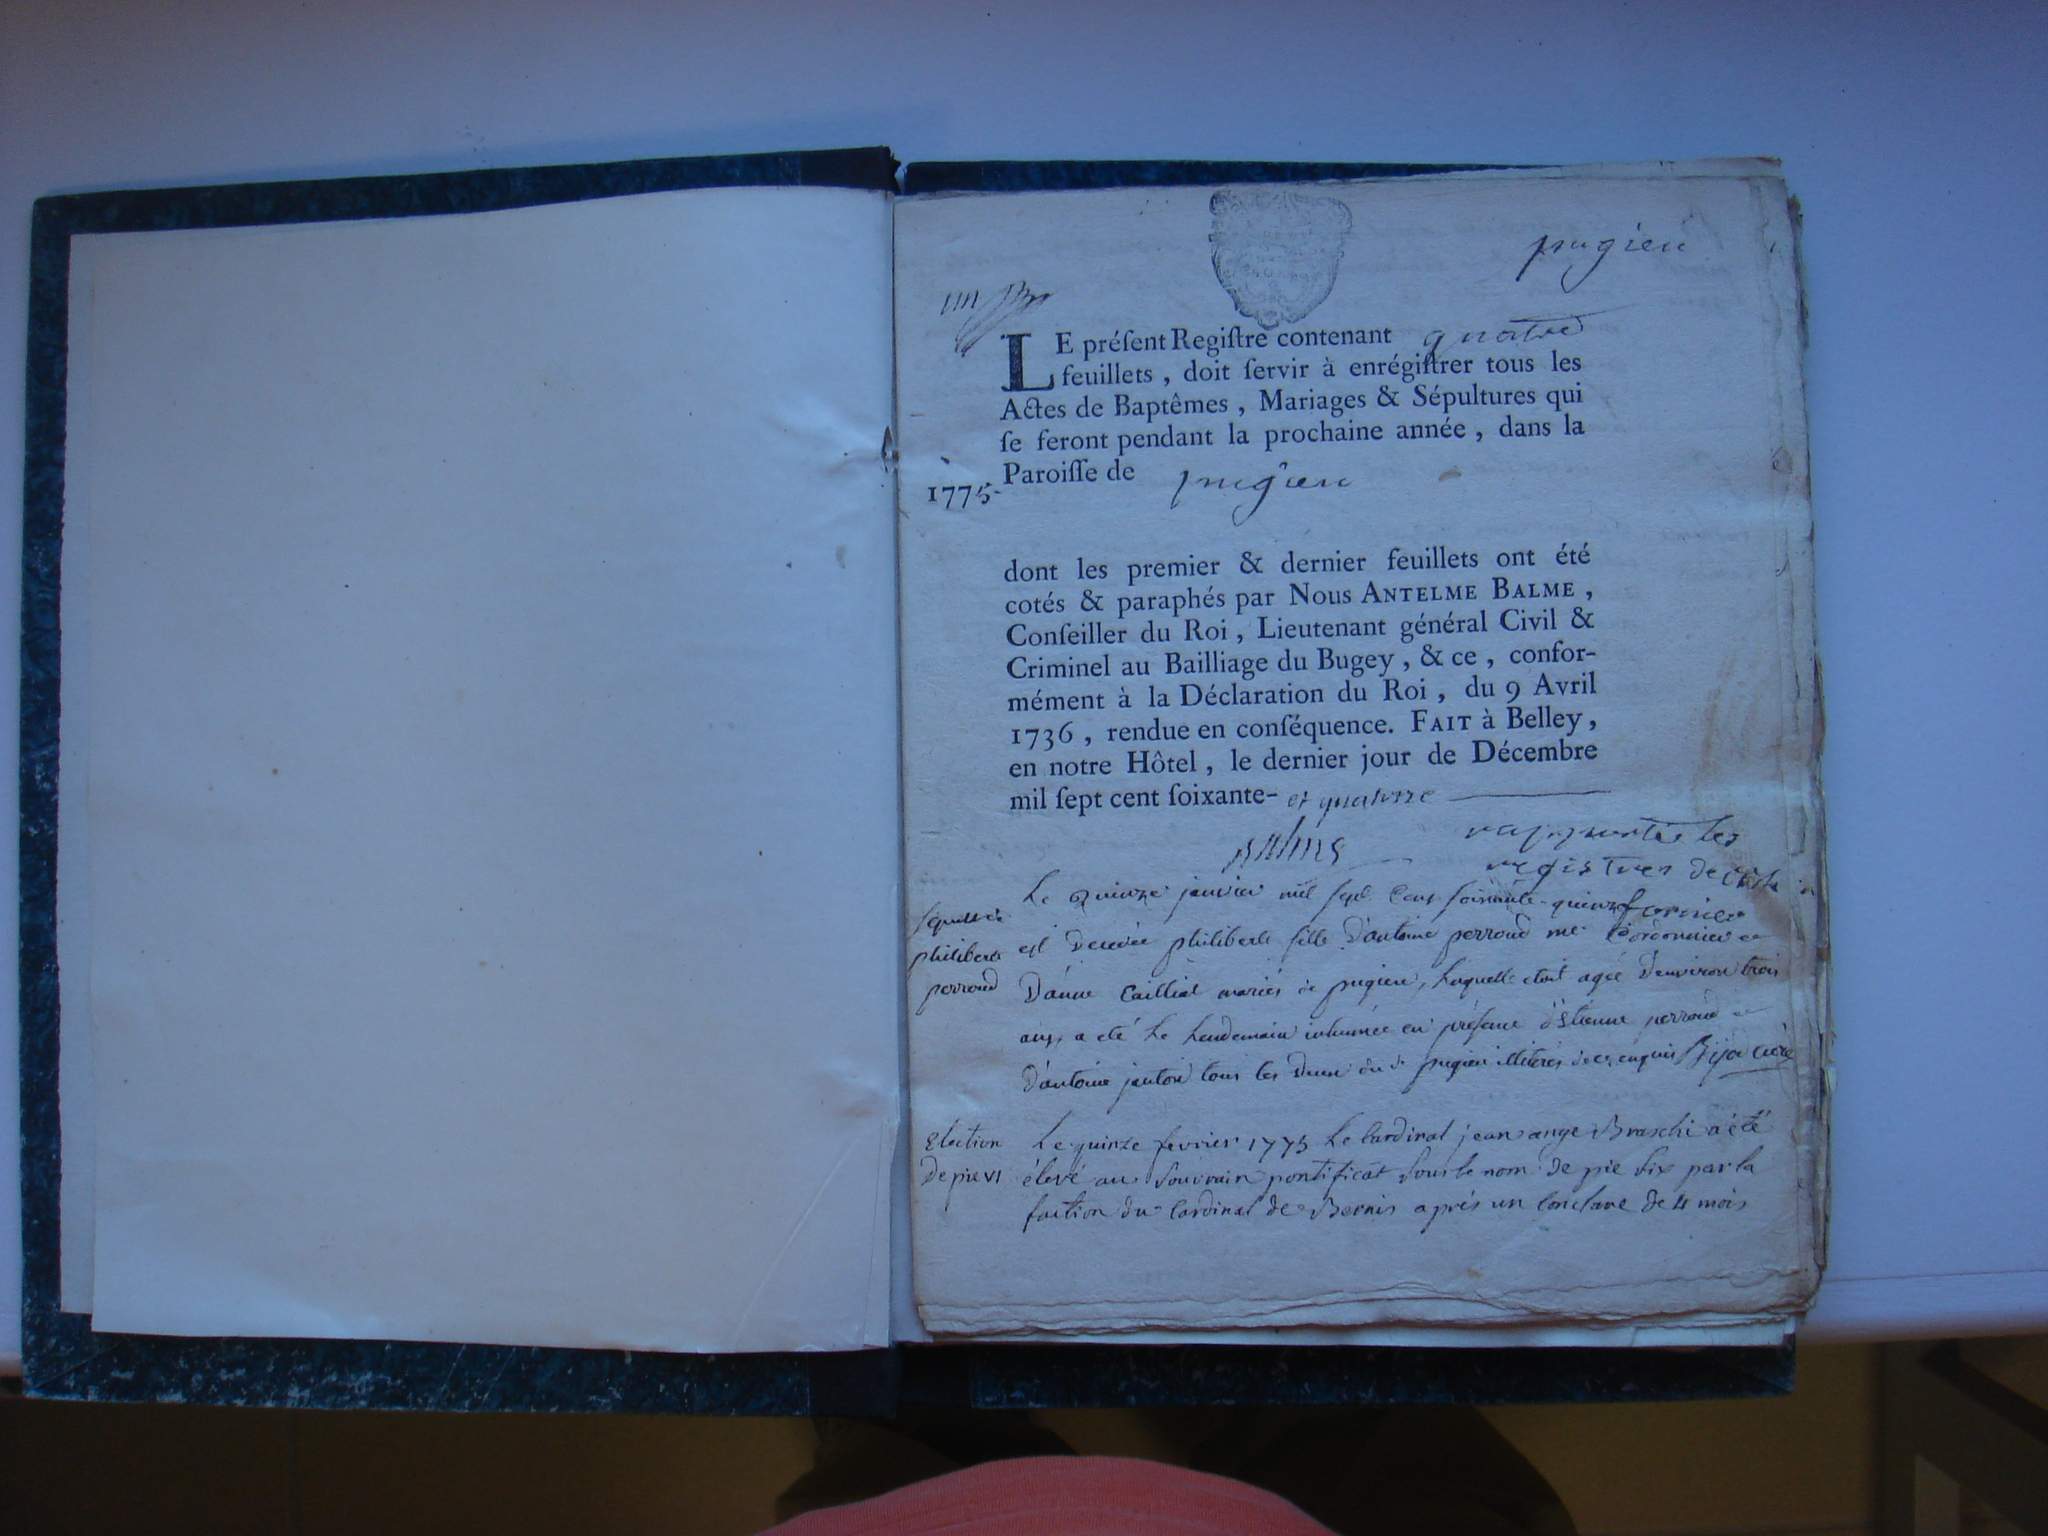 pugieu
LE préſent Regiſtre contenant quatre
feuillets, doit ſervir à enrégiſtrer tous les
Actes de Baptêmes, Mariages & Sépultures qui
ſe feront pendant la prochaine année, dans la
Paroiſſe de pugieu
1775.
dont les premier & dernier feuillets ont été
cotés & paraphés par Nous ANTELME BALME,
Conſeiller du Roi, Lieutenant général Civil &
Criminel au Bailliage du Bugey, & ce, confor-
mément à la Déclaration du Roi, du 9 Avril
1736, rendue en conſéquence. FAIT à Belley,
en notre Hôtel, le dernier jour de Décembre
mil ſept cent ſoixante- et quatorze
Balme
rapporter les
registres de
Le quinze janvier mil sept cent soixante-quinze
philiberte
perroud
est decedée philiberte fille d'antoine perroud me Cordonnier et
D'anne Cailliat mariés de pugieu, laquelle etoit agée d'environ trois
ans, a eté le lendemain inhumée en présence d'Etienne perroud et
D'antoine janton tous les deux du d. pugieu illiterés de ce enquis
Election
De pie VI
Le quinze fevrier 1775 le Cardinal jean ange Braschi a été
élevé au souvrain pontificat sous le nom de pie six par la
faction du Cardinal de Bernis aprés un Conclave de 4 mois